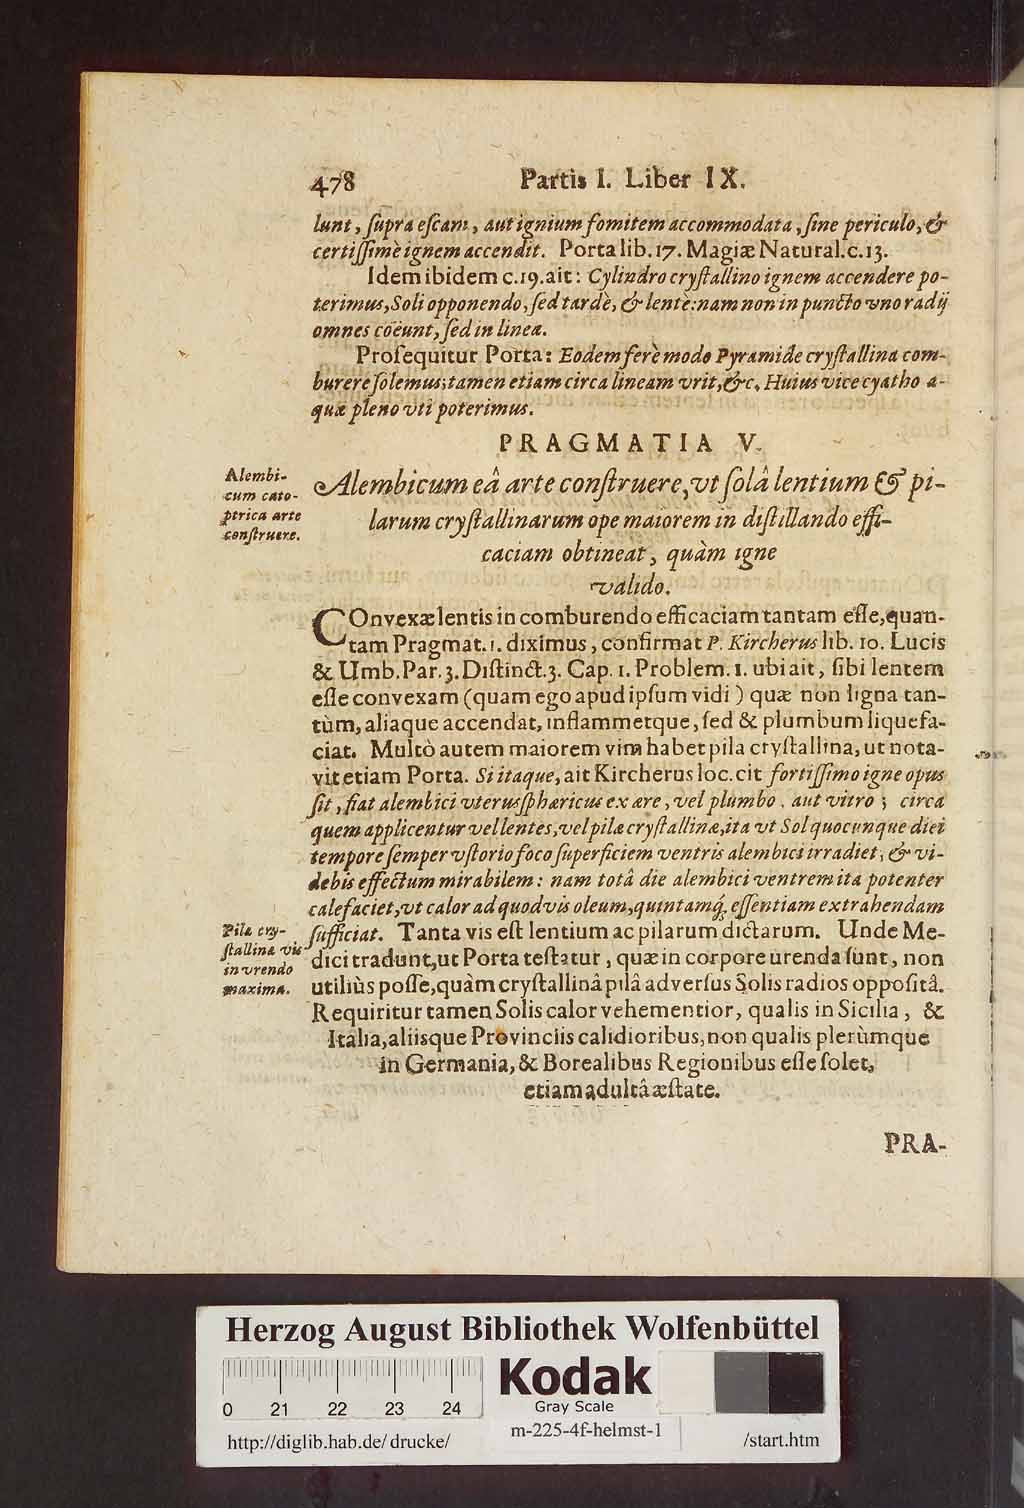 478 Partis I. Liber IX.
lunt, ſupra eſcam, aut ignium fomitem accommodata, ſine periculo, &
certiſſimè ignem accendit. Porta lib. 17. Magiæ Natural. c. 13.
Idem ibidem c. 19. ait: Cylindro cryſtallino ignem accendere po-
terimus, Soli opponendo, ſed tardè, & lente: nam non in puncto vno radij
omnes coëunt, ſed in linea.
Proſequitur Porta: Eodem ferè modo Pyramide cryſtallina com-
burere ſolemus; tamen etiam circa lineam vrit, &c. Huius vice cyatho a-
quæ pleno vti poterimus.
PRAGMATIA V.
Alembi-
cum cato-
ptrica arte
conſtruere.
Alembicum eâ arte conſtruere, vt ſolâ lentium & pi-
larum cryſtallinarum ope maiorem in diſtillando effi-
caciam obtineat, quàm igne
valido.
COnvexæ lentis in comburendo efficaciam tantam eſſe, quan-
tam Pragmat. 1. diximus, confirmat P. Kircherus lib. 10. Lucis
& Umb. Par. 3. Diſtinct. 3. Cap. 1. Problem. 1. ubi ait, ſibi lentem
eſſe convexam (quam ego apud ipſum vidi) quæ non ligna tan-
tùm, aliaque accendat, inflammetque, ſed & plumbum liquefa-
ciat. Multò autem maiorem vim habet pila cryſtallina, ut nota-
vit etiam Porta. Si itaque, ait Kircherus loc. cit fortiſſimo igne opus
ſit, fiat alembici vterus ſphæricus ex ære, vel plumbo, aut vitro; circa
quem applicentur vel lentes, vel pilæ cryſtallinæ, ita vt Sol quocunque diei
tempore ſemper vſtorio foco ſuperficiem ventris alembici irradiet, & vi-
debis effectum mirabilem: nam totâ die alembici ventrem ita potenter
calefaciet, vt calor ad quodvis oleum, quintamq́; eſſentiam extrahendam
Pilæ cry-
ſtallinæ vis
in vrendo
maxima.
ſufficiat. Tanta vis eſt lentium ac pilarum dictarum. Unde Me-
dici tradunt, ut Porta teſtatur, quæ in corpore urenda ſunt, non
utiliùs poſſe, quàm cryſtallinâ pilâ adverſus Solis radios oppoſitâ.
Requiritur tamen Solis calor vehementior, qualis in Sicilia, &
Italia, aliisque Provinciis calidioribus, non qualis plerùmque
in Germania, & Borealibus Regionibus eſſe ſolet,
etiam adultâ æſtate.
PRA-
Herzog August Bibliothek Wolfenbüttel
0 21 22 23 24
Kodak
Gray Scale
http://diglib.hab.de/drucke/ m-225-4f-helmst-1 /start.htm